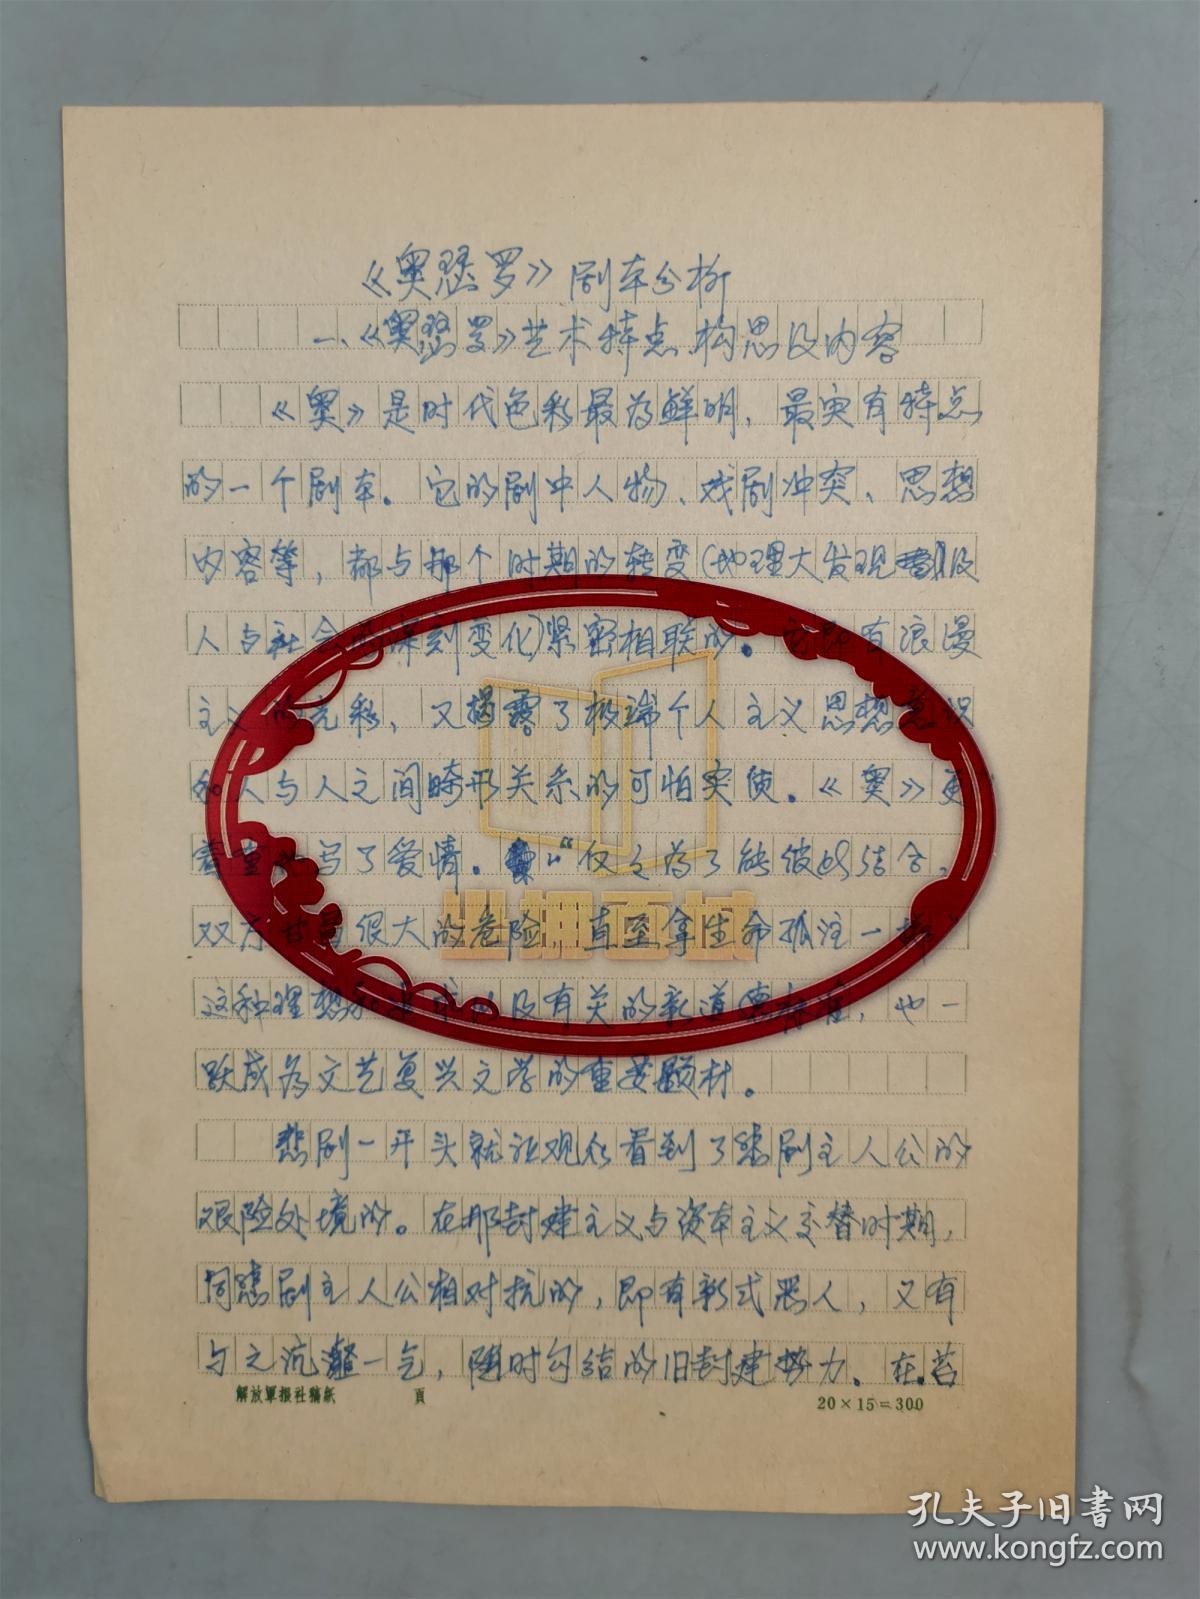 《奥瑟罗》剧本分析
一、《奥瑟罗》艺术特点、构思及内容
《奥》是时代色彩最为鲜明，最突有特点
的一个剧本。它的剧中人物、戏剧冲突、思想
内容等，都与那个时期的转变(地理大发现及
人与社会的深刻变化)紧密相联的。它即有浪漫
主义的光彩，又揭露了极端个人主义思想意识
和人与人之间畸形关系的可怕实质。《奥》更
着重描写了爱情。“仅仅为了能彼此结合，
双方甘冒很大的危险，直至拿生命孤注一掷”
这种理想和与有关的新道德标准，也一
跃成为文艺复兴文学的重要题材。
悲剧一开头就让观众看到了悲剧主人公的
艰险处境的。在那封建主义与资本主义交替时期，
同悲剧主人公相对抗的，即有新式恶人，又有
与之沆瀣一气，随时勾结的旧封建势力。在苔
解放軍报社稿紙 頁 20×15=300
坐拥百城
孔夫子旧书网
www.kongfz.com